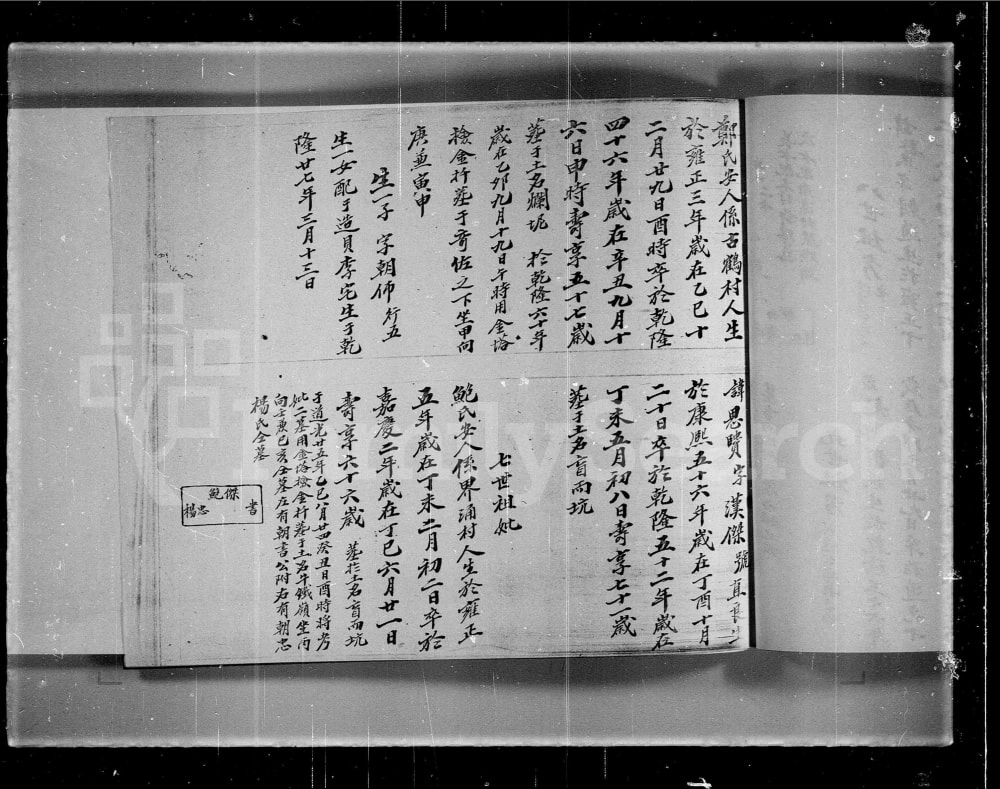 鄭氏安人係古鶴村人生
於雍正三年歲在乙巳十
二月廿九日酉時卒於乾隆
四十六年歲在辛丑九月十
六日申時壽享五十七歲
葬于土名爛坭 於乾隆六十年
歲在乙卯九月十九日午時用金塔
檢金拧葬于奇佐之下坐甲向
庚兼寅申
生一子 字朝佈 行五
生一女配于造貝李宅生于乾
隆廿七年三月十三日
諱思贒字漢傑號直
於康熙五十六年歲在丁酉十月
二十日卒於乾隆五十二年歲在
丁未五月初八日壽享七十一歲
葬于土名盲而坑
七世祖妣
鮑氏安人係界涌村人生於雍正
五年歲在丁未二月初二日卒於
嘉慶二年歲在丁巳六月廿一日
壽享六十六歲 葬於土名盲而坑
于道光廿五年乙巳八月廿四癸丑日酉時將考
妣二墓用金塔檢金拧葬于土名牛鐵嶺坐丙
向壬庚巳亥仝墓左有朝書公附右有朝忠
楊氏仝墓
傑 鮑
書 忠 楊
Family Search